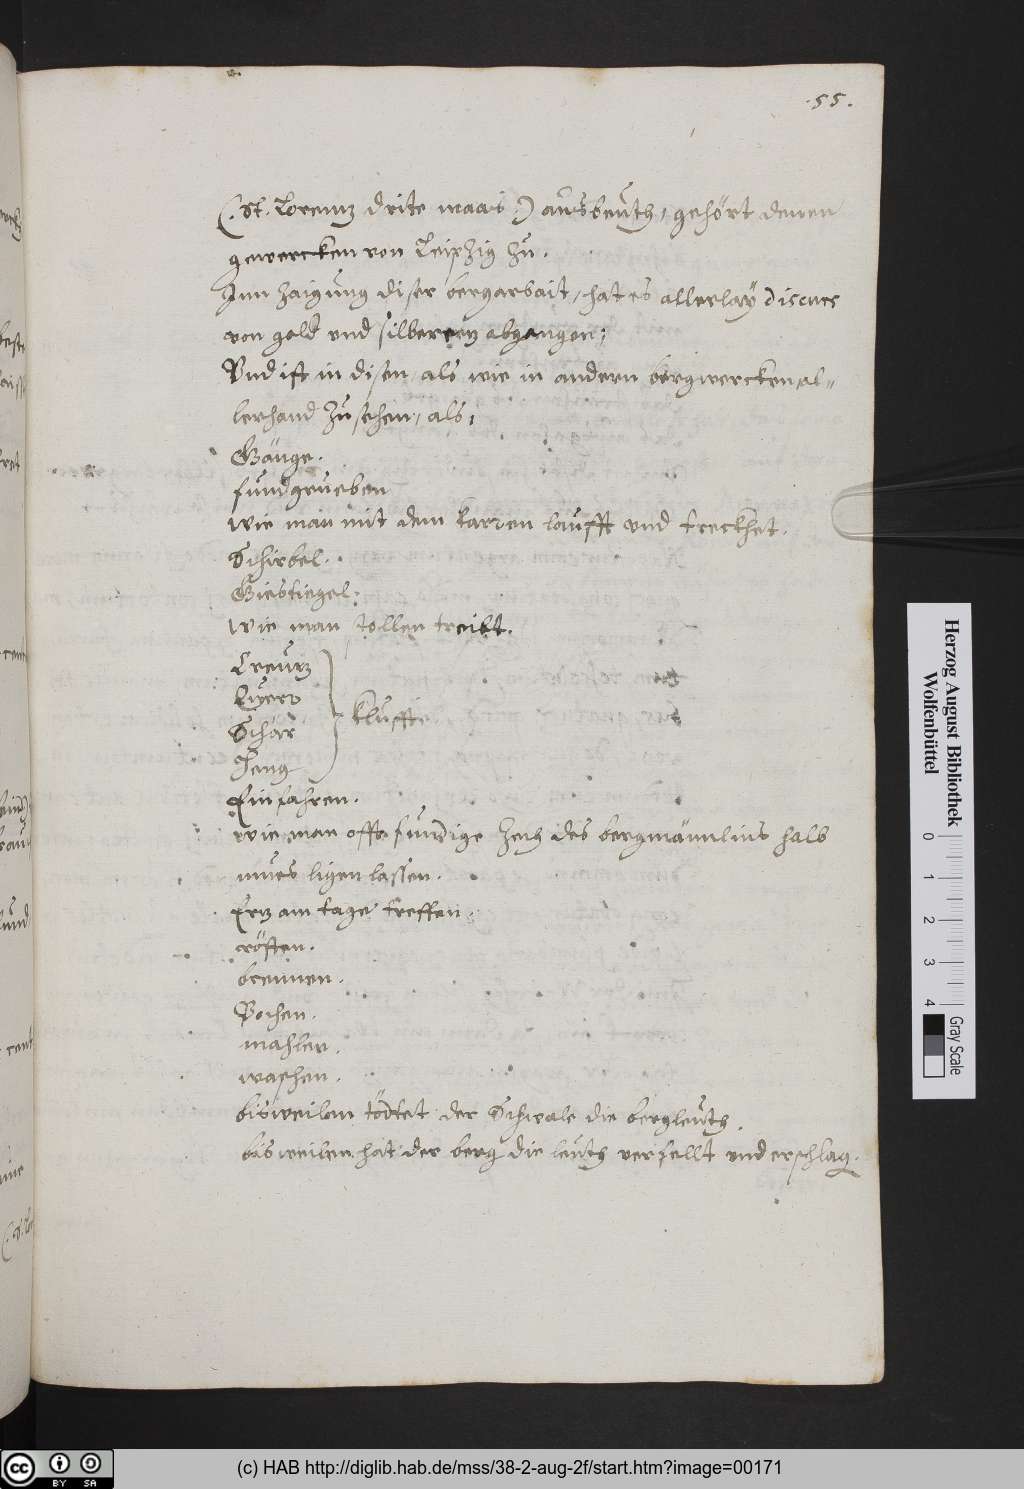 .55.
(. St. Lorentz drite maas .) ausbeuth, gehört denen
gewercken von Leipzig zu.
Inn zaigung diser bergarbait, hat es allerlay discurs
von gold und silberertz abgangen;
Und ist in disen, als wie in andern bergwercken, al-
lerhand zu sehen, als,
Gänge.
fundgrueben
wie man mit dem karren laufft und treckhet.
Schirbel.
Giestiegel.
wie man stollen treibt.
Creutz
Quer
Schar
Heng
} klüffte
Einfahren.
wie man offt fündige Zech des bergmännlins halb
mues ligen lassen.
Ertz am tage treffen.
rösten.
brennen.
Pochen.
mahlen.
waschen.
bisweilen tödtet der Schwale die bergleuth.
bisweilen hat der berg die leuth verfellt und erschlag.
Herzog August Bibliothek
Wolfenbüttel
0 1 2 3 4
Gray Scale
cc BY SA
(c) HAB http://diglib.hab.de/mss/38-2-aug-2f/start.htm?image=00171